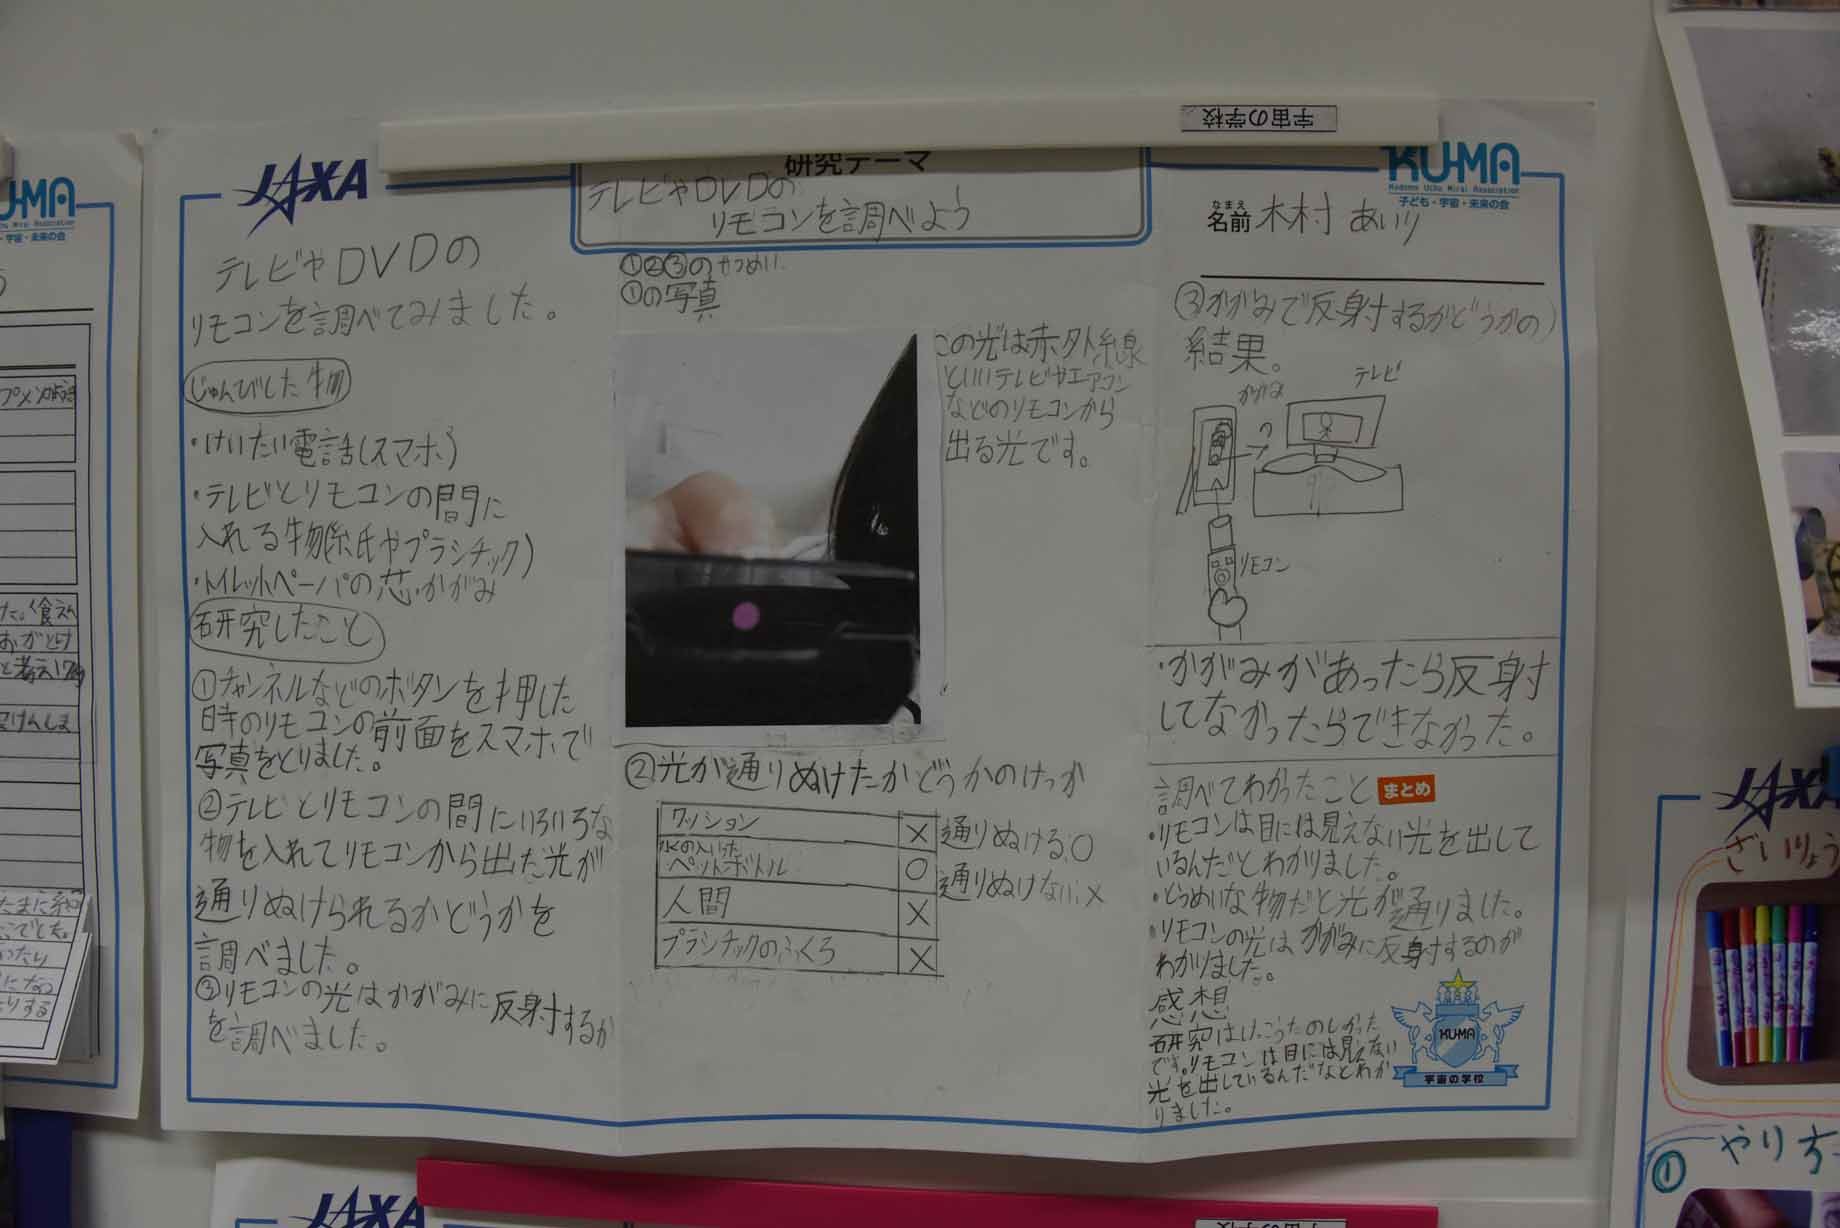 宇宙の学校
JAXA
研究テーマ
テレビやDVDの
リモコンを調べよう
KU-MA
Kodomo Uchu Mirai Association
子ども・宇宙・未来の会
なまえ
名前 木村 あいり
テレビやDVDの
リモコンを調べてみました。
じゅんびした物
・けいたい電話(スマホ)
・テレビとリモコンの間に
入れる物(紙やプラシチック)
・トイレットペーパの芯・かがみ
研究したこと
①チャンネルなどのボタンを押した
時のリモコンの前面をスマホで
写真をとりました。
②テレビとリモコンの間にいろいろな
物を入れてリモコンから出た光が
通りぬけられるかどうかを
調べました。
③リモコンの光はかがみに反射するか
を調べました。
①②③のせつめい
①の写真
この光は赤外線
といいテレビやエアコン
などのリモコンから
出る光です。
②光が通りぬけたかどうかのけっか
クッション ×
水の入った
ペットボトル ○
人間 ×
プラシチックのふくろ ×
通りぬける、○
通りぬけない、×
③かがみで反射するかどうかの
結果。
かがみ
テレビ
リモコン
・かがみがあったら反射
してなかったらできなかった。
調べてわかったこと まとめ
・リモコンは目には見えない光を出して
いるんだとわかりました。
・とうめいな物だと光が通りました。
・リモコンの光はかがみに反射するのが
わかりました。
感想
研究はけっこうたのしかった
です。リモコンは目には見えない
光を出しているんだなとわか
りました。
KU-MA
宇宙の学校
U-MA
・未来の会
JAXA
ざいりょう
①やり方
JAXA
宇宙の学校